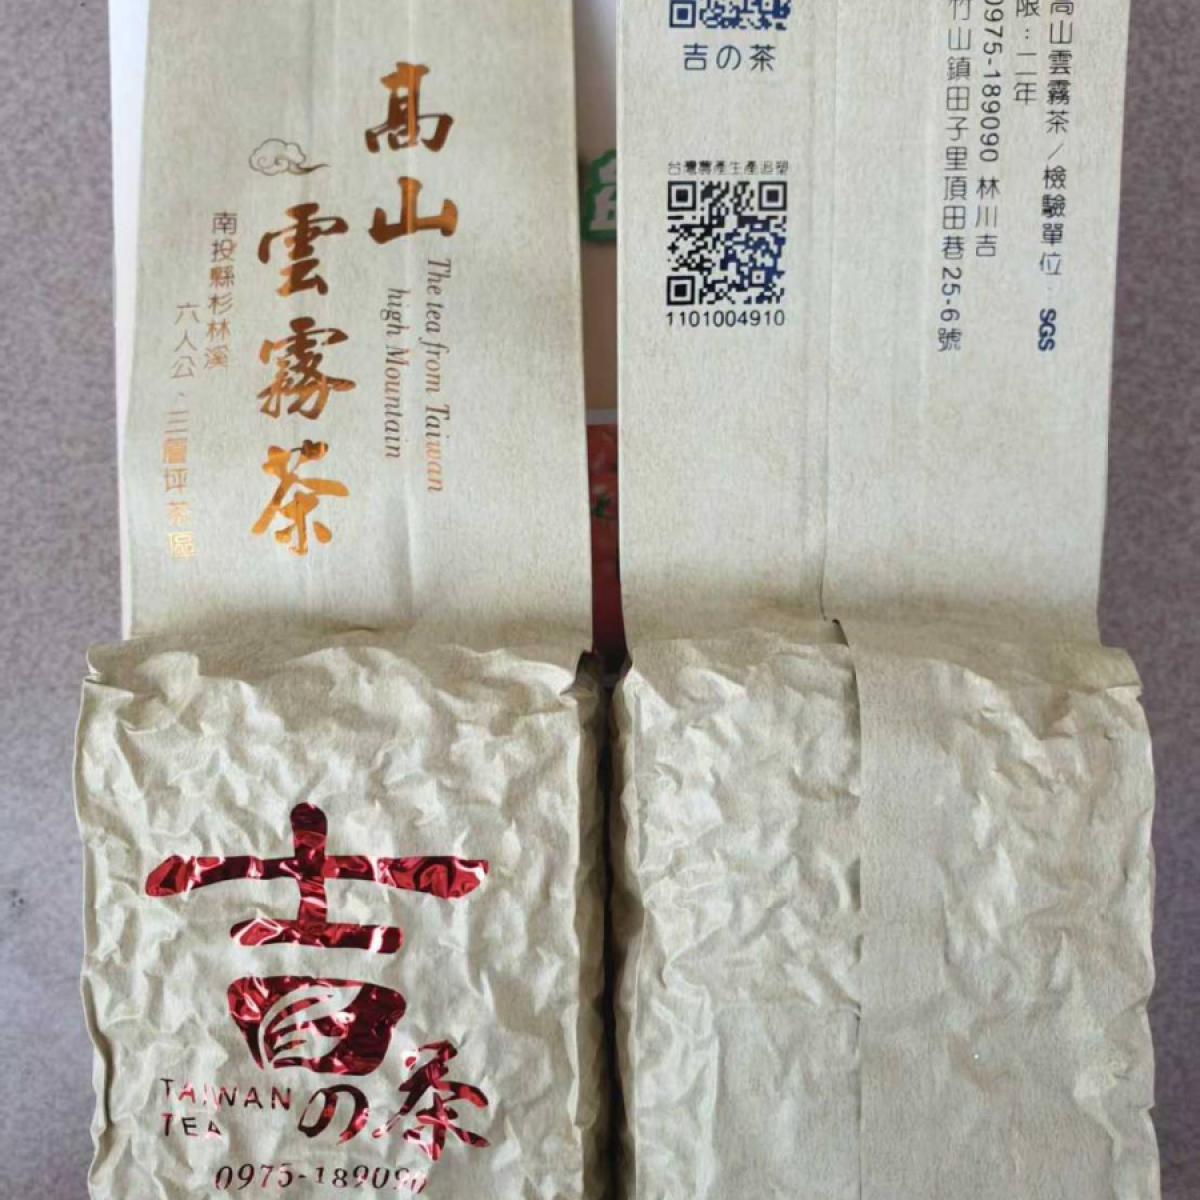 高山
雲霧茶
The tea from Taiwan
high Mountain
南投縣杉林溪
六人公、三層坪茶區
吉の茶
TAIWAN
TEA
0975-189090
吉の茶
台灣農產生產追塑
1101004910
高山雲霧茶／檢驗單位：SGS
限：二年
0975-189090 林川吉
竹山鎮田子里頂田巷25-6號